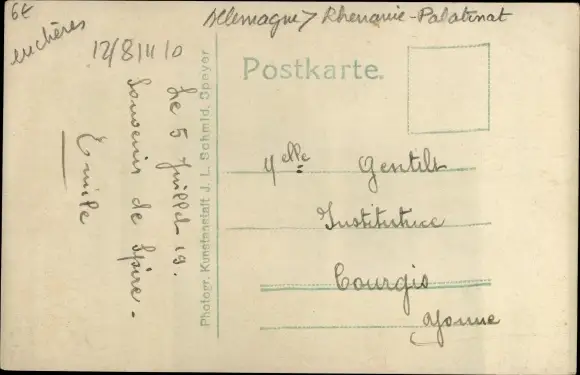 6€
enchères
12/8/11/0
Allemagne > Rhenanie-Palatinat
Postkarte.
Le 5 Juillet 19.
Souvenir de Spire.
Emile
Photogr. Kunstanstalt J. L. Schmid, Speyer
Melle Gentils
Institutrice
Courgis
Yonne